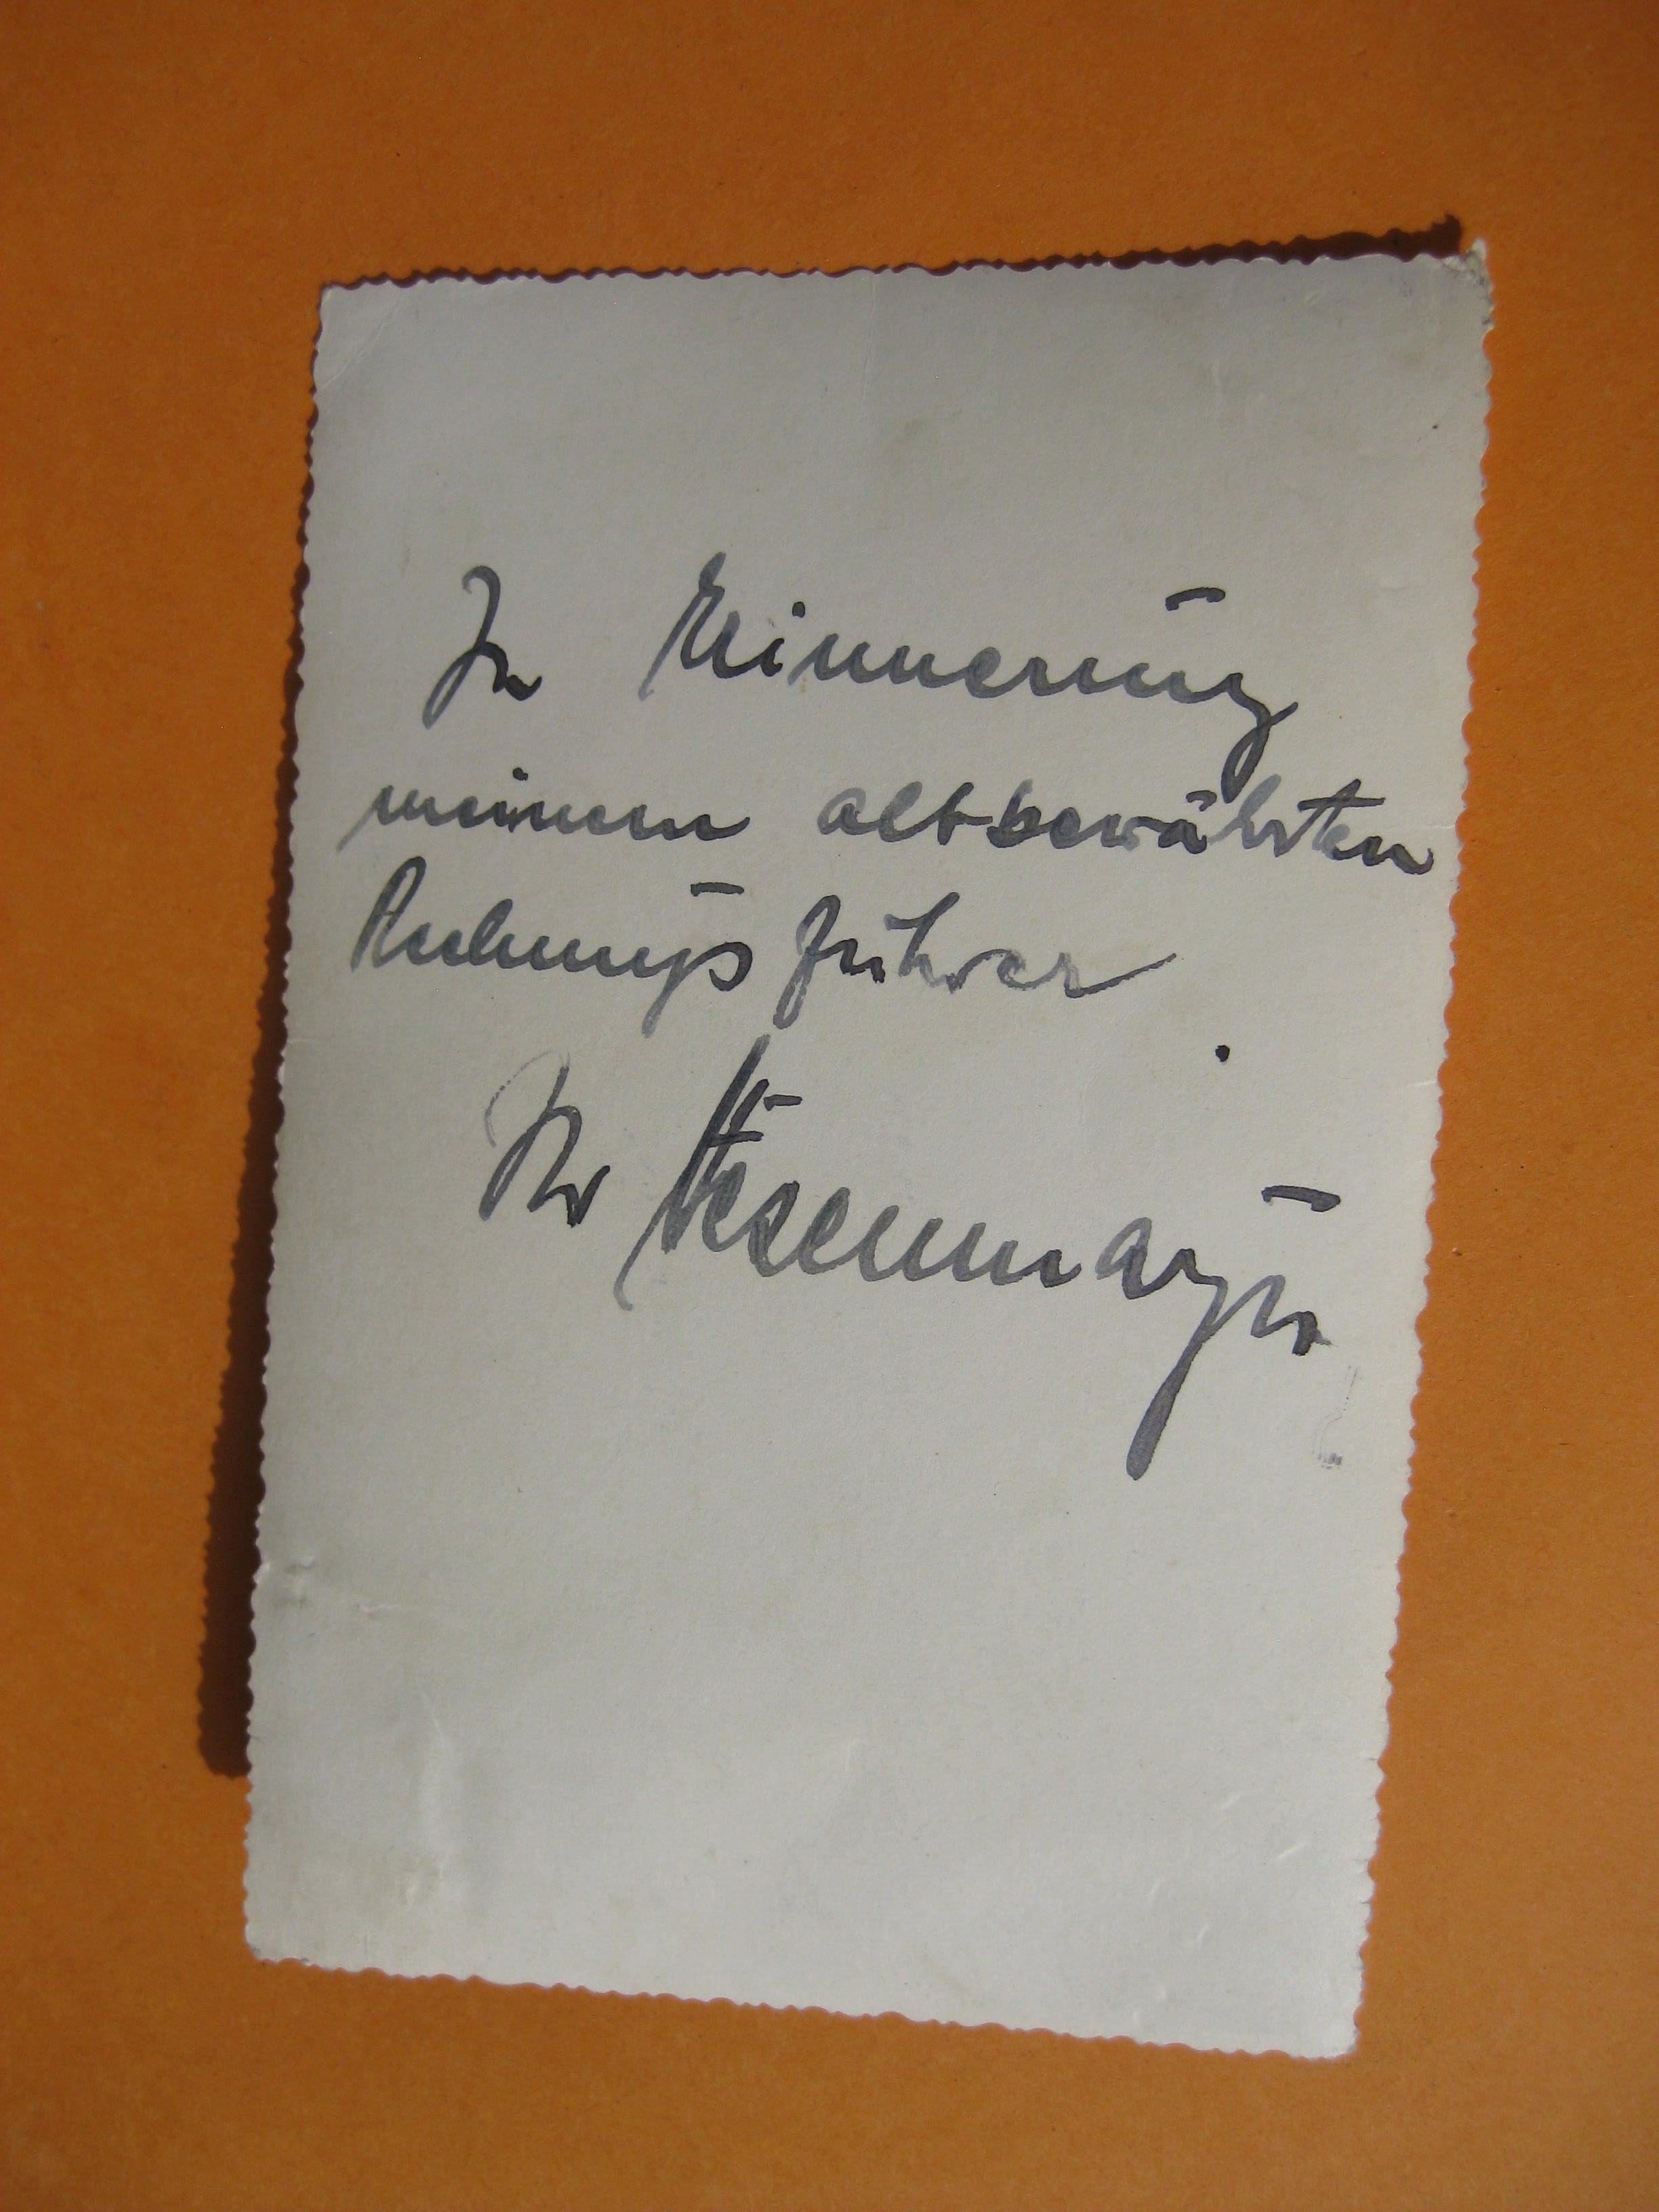 In Erinnerung
meinem altbewährten
Rechnungsführer
Ihr